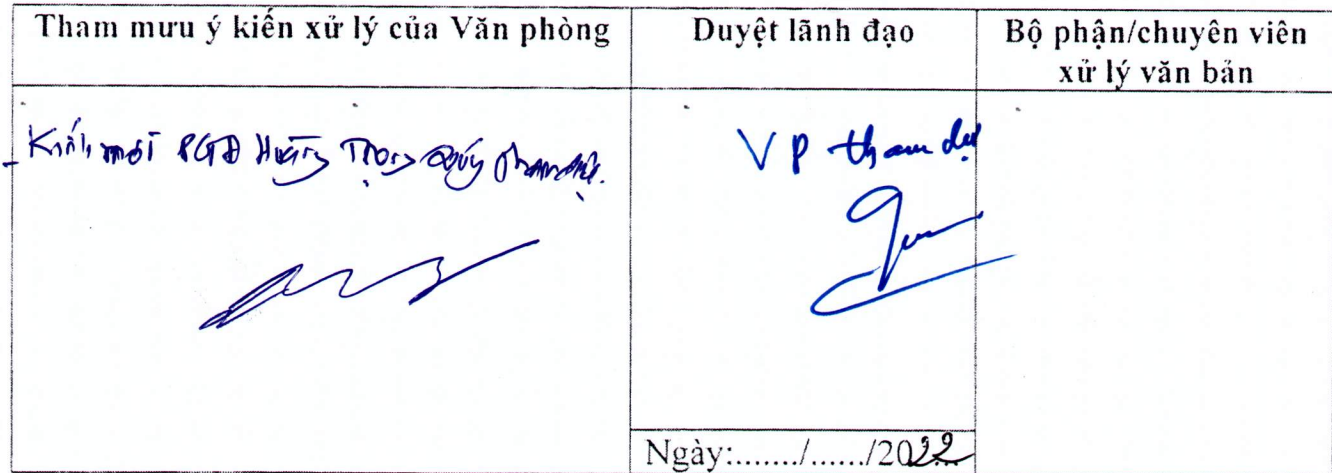 Tham mưu ý kiến xử lý của Văn phòng
Duyệt lãnh đạo
Bộ phận/chuyên viên
xử lý văn bản
- Kính mời PGĐ Trọng Quý tham dự.
VP tham dự
Ngày:......./....../2022